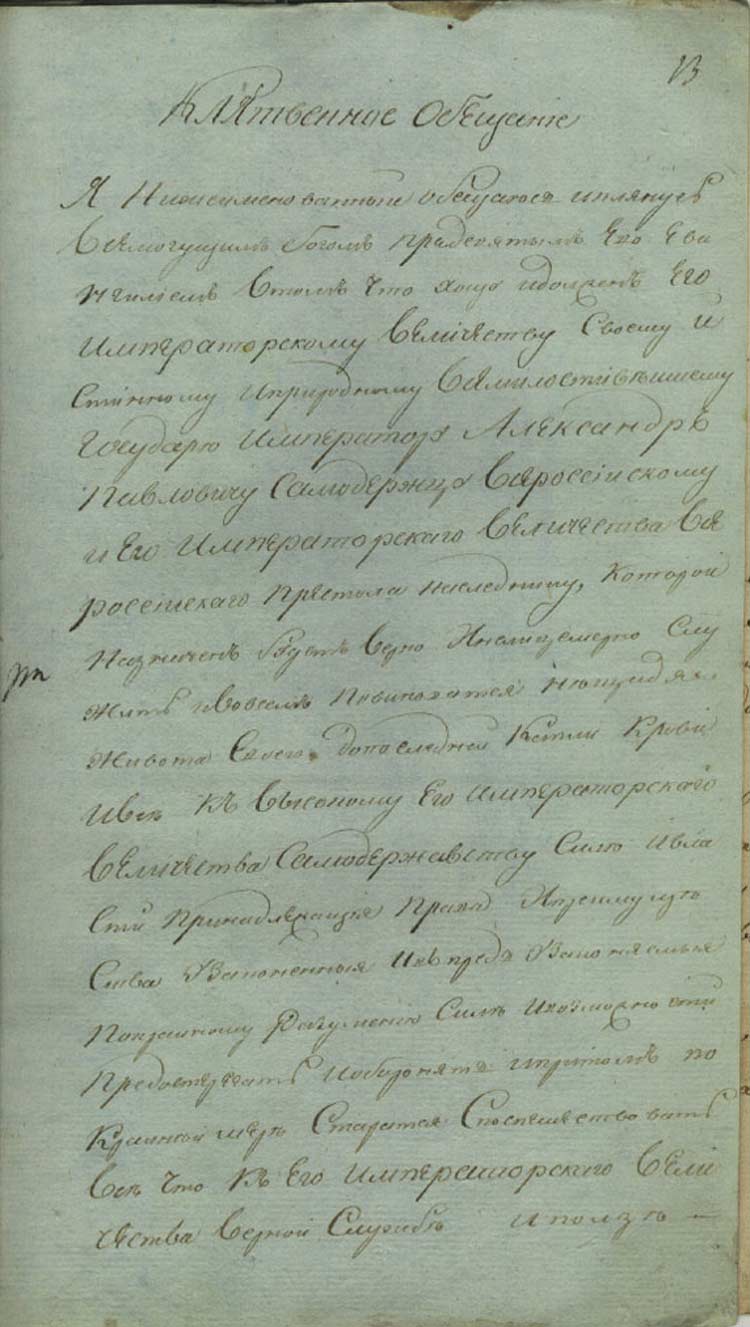 13
Клятвенное обещание
Я Нижеименованныи обещаюся икленусь
Всемогущимъ богомъ предсвятымъ Его Ева
нгилiемъ Втомъ что хощу идолженъ Его
Императорскому Величеству Своему И
Стинному Иприродному Всемилостiвѣишему
Государю Императору Александръ
Павловичу Самодержцу Всеросciискому
и Его Императорскаго Величества Все
росciискаго Престола наследнику, Которой
Назначенъ будетъ верно Инелицемерно Слу
жить Ивовсемъ Повиноватся нещадя
живота Своего допоследней Капли Кровiи
Ивсе Къ высокому Его Императорскаго
Величества Самодержавству Силѣ Ивла
сти Принадлежащiя Права Ипреимуще
Ства Узаконенныя Ивпредъ Узаконяемыя
Покрайнему Разумению Силѣ Ивозможности
Предостерегать Иоборонять ипритомъ по
Крайней мерѣ Старатся Споспешествовать
Все Что Къ Его Императорскаго Вели
чества Верной Службѣ Иползѣ